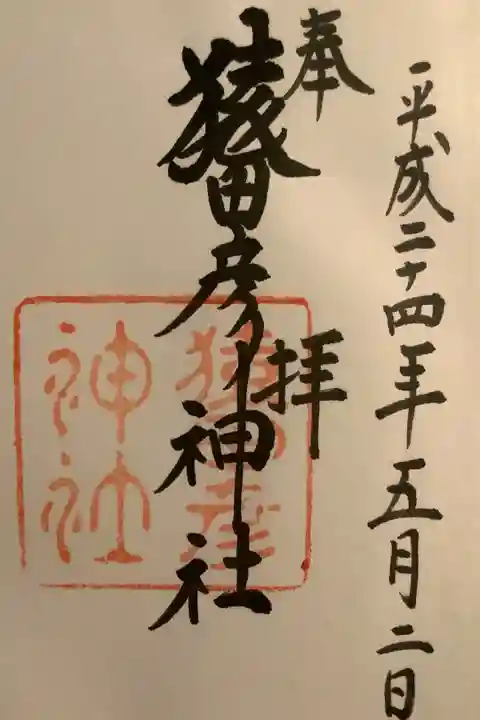 平成二十四年五月二日
奉拝
猿田彦神社
猿田彦
神社